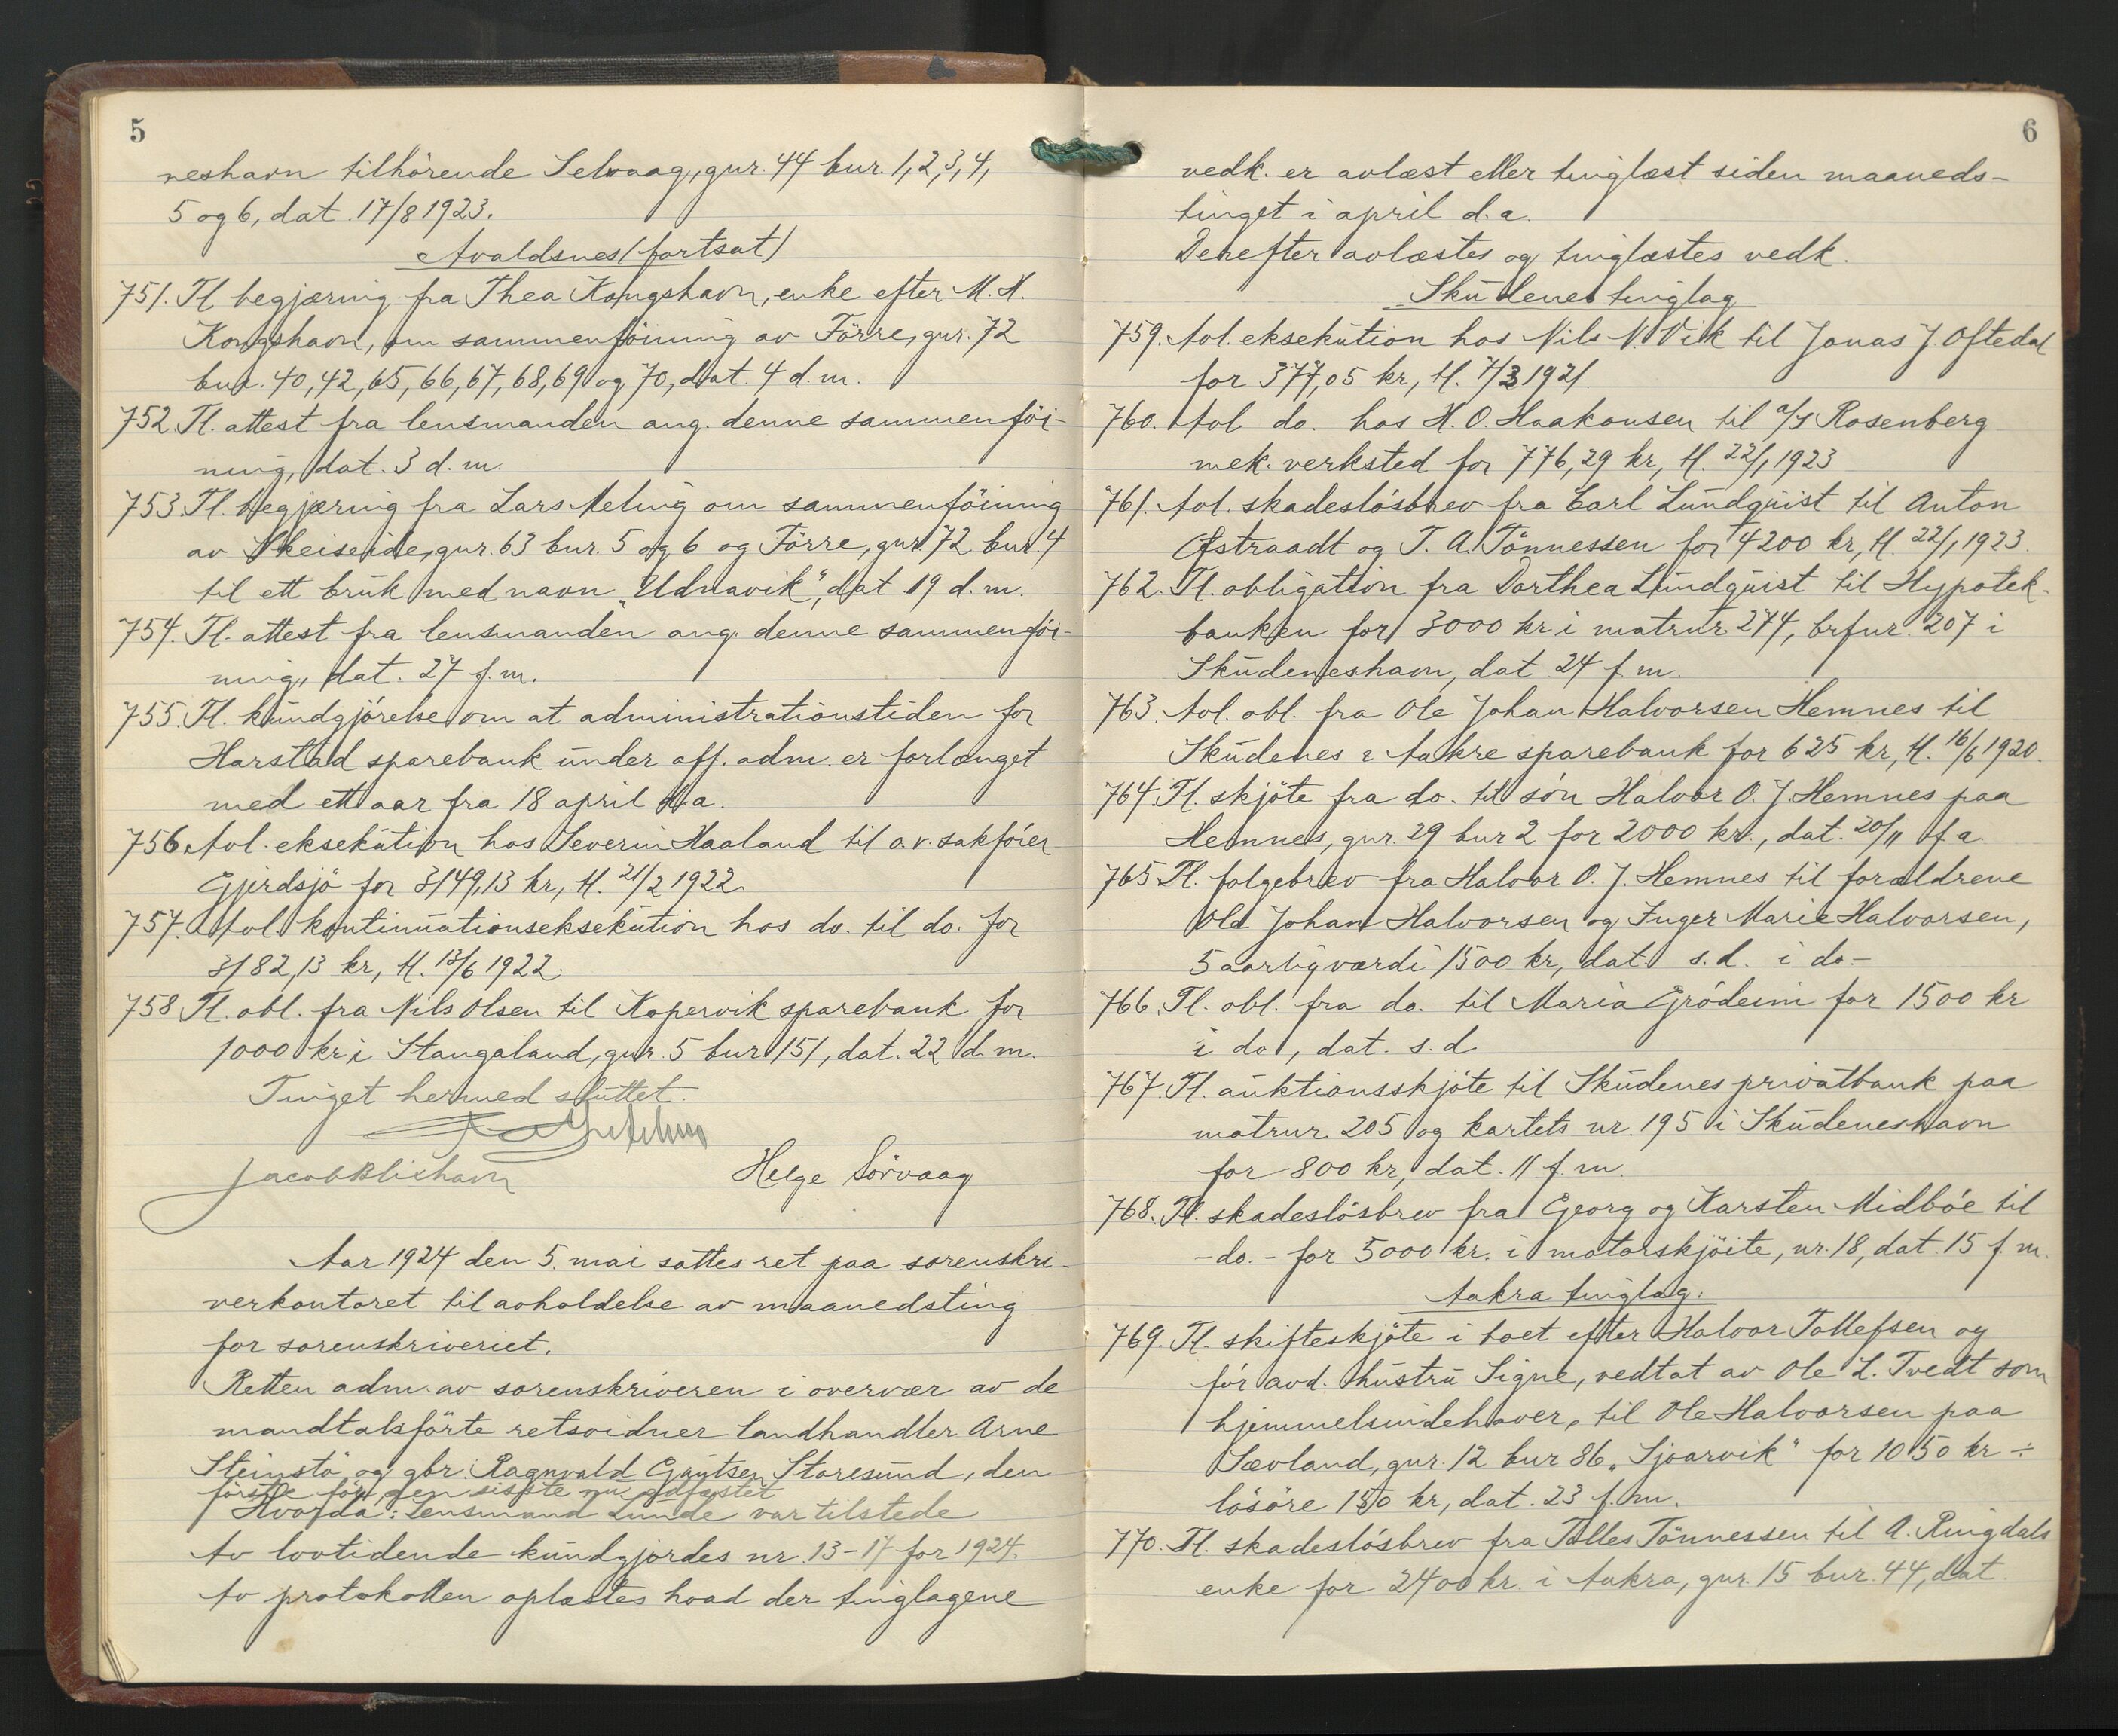 5
neshavn tilhörende Selvaag, gnr. 44 bnr. 1, 2, 3, 4,
5 og 6, dat. 17/8 1923.
Avaldsnes (fortsat)
751. Tl begjæring fra Thea Kongshavn, enke efter M. N.
Kongshavn, om sammenföining av Förre, gnr. 72
bnr. 40, 42, 65, 66, 67, 68, 69 og 70, dat. 4 d. m.
752. Tl. attest fra lensmanden ang. denne sammenföi-
ning, dat. 3 d. m.
753. Tl. begjæring fra Lars Meling om sammenföining
av Skeiseide, gnr. 63 bnr. 5 og 6 og Förre, gnr. 72 bnr. 4
til ett bruk med navn „Udnavik“, dat 19 d. m.
754. Tl. attest fra lensmanden ang. denne sammenföi-
ning, dat. 27 f. m.
755. Tl. kundgjörelse om at administrationstiden for
Harstad sparebank under off. adm. er forlænget
med ett aar fra 18 april d. a.
756. Avl. eksekution hos Severin Haaland til o. r. sakförer
Gjerdsjö for 3149,13 kr, tl. 21/2 1922.
757. Avl. kontinuationseksekution hos do. til do. for
3182,13 kr, tl. 13/6 1922.
758 Tl. obl. fra Nils Olsen til Kopervik sparebank for
1000 kr i Stangaland, gnr. 5 bnr 151, dat. 22 d. m.
Tinget hermed sluttet.
Jacob Blichavn Helge Sörvaag
Aar 1924 den 5. mai sattes ret paa sorenskri-
verkontoret til avholdelse av maanedsting
for sorenskriveriet.
Retten adm. av sorenskriveren i overvær av de
mandtalsförte retsvidner landhandler Arne
Steinstö og gbr. Ragnvald Gautsen Storesund, den
förste för, den sisste nu edfæstet
Hvorda: Lensmand Lunde var tilstede
Av lovtidende kundgjordes nr. 13-17 for 1924.
Av protokollen oplæstes hvad der tinglagene
6
vedk. er avlæst eller tinglæst siden maaneds-
tinget i april d. a.
Derefter avlæstes og tinglæstes vedk.
Skudenes tinglag
759. Avl. eksekution hos Nils N. Vik til Jonas J. Oftedal
for 377,05 kr, tl. 7/3 1921.
760. Avl. do. hos H. O. Haakonsen til a/s Rosenberg
mek. verksted for 776,29 kr, tl. 22/1 1923
761. Avl. skadeslösbrev fra Carl Lundquist til Anton
Östraadt og T. A. Tönnessen for 4200 kr, tl. 22/1 1923.
762. Tl. obligation fra Dorthea Lundquist til Hypotek-
banken for 3000 kr i matrnr 274, brfnr. 207 i
Skudeneshavn, dat 24 f. m.
763. Avl. obl. fra Ole Johan Halvorsen Hemnes til
Skudenes & Aakre sparebank for 625 kr, tl. 16/6 1920.
764. Tl. skjöte fra do. til sön Halvor O. J. Hemnes paa
Hemnes, gnr. 29 bnr 2 for 2000 kr., dat. 20/11 f. a.
765 Tl. folgebrev fra Halvor O. J. Hemnes til forældrene
Ole Johan Halvorsen og Inger Marie Halvorsen,
5 aarlig værdi 1500 kr, dat. s. d. i do-
766. Tl. obl. fra do. til Maria Grödeim for 1500 kr
i do, dat. s. d
767. Tl. auktionsskjöte til Skudenes privatbank paa
matrnr. 205 og kartets nr. 195 i Skudeneshavn
for 800 kr, dat. 11 f. m.
768. Tl. skadeslösbrev fra Georg og Karsten Midböe til
- do. - for 5000 kr. i motorskjöite, nr. 18, dat. 15 f. m.
Aakra tinglag:
769. Tl. skifteskjöte i boet efter Halvor Tollefsen og
för avd. hustru Signe, vedtat av Ole L. Tvedt som
hjemmelsindehaver, til Ole Halvorsen paa
Sævland, gnr. 12 bnr 86 „Sjoarvik“ for 1050 kr ÷
lösöre 150 kr, dat. 23 f. m.
770. Tl. skadeslösbrev fra Tolles Tönnessen til A. Ringdals
enke for 2400 kr. i Aakra, gnr. 15 bnr. 44, dat.